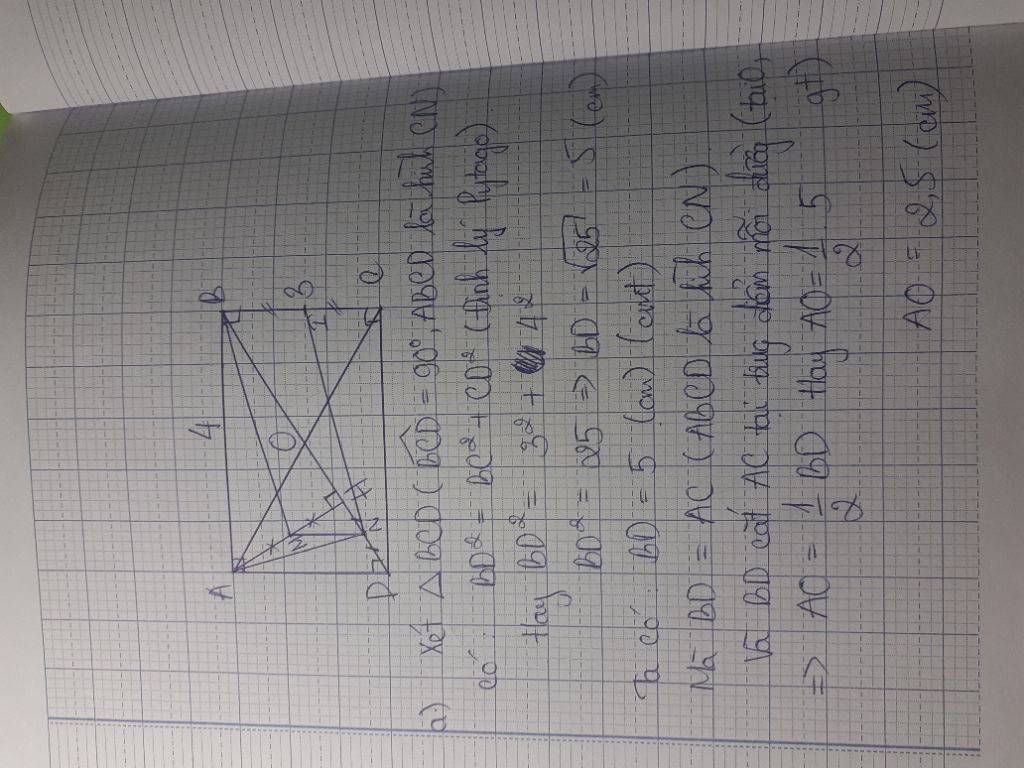 A 4 B
O
3
M I
N
D C
a) Xét △ BCD ( BĈD = 90°, ABCD là hình CN)
có: BD² = BC² + CD² (Định lý Pytago)
Hay BD² = 3² + 4²
BD² = 25 => BD = √25 = 5 (cm)
Ta có: BD = 5 (cm) (cmt)
Mà BD = AC ( ABCD là hình CN)
Và BD cắt AC tại trung điểm mỗi đường (tại O, gt)
=> AO = 1/2 BD Hay AO = 1/2 5
AO = 2,5 (cm)